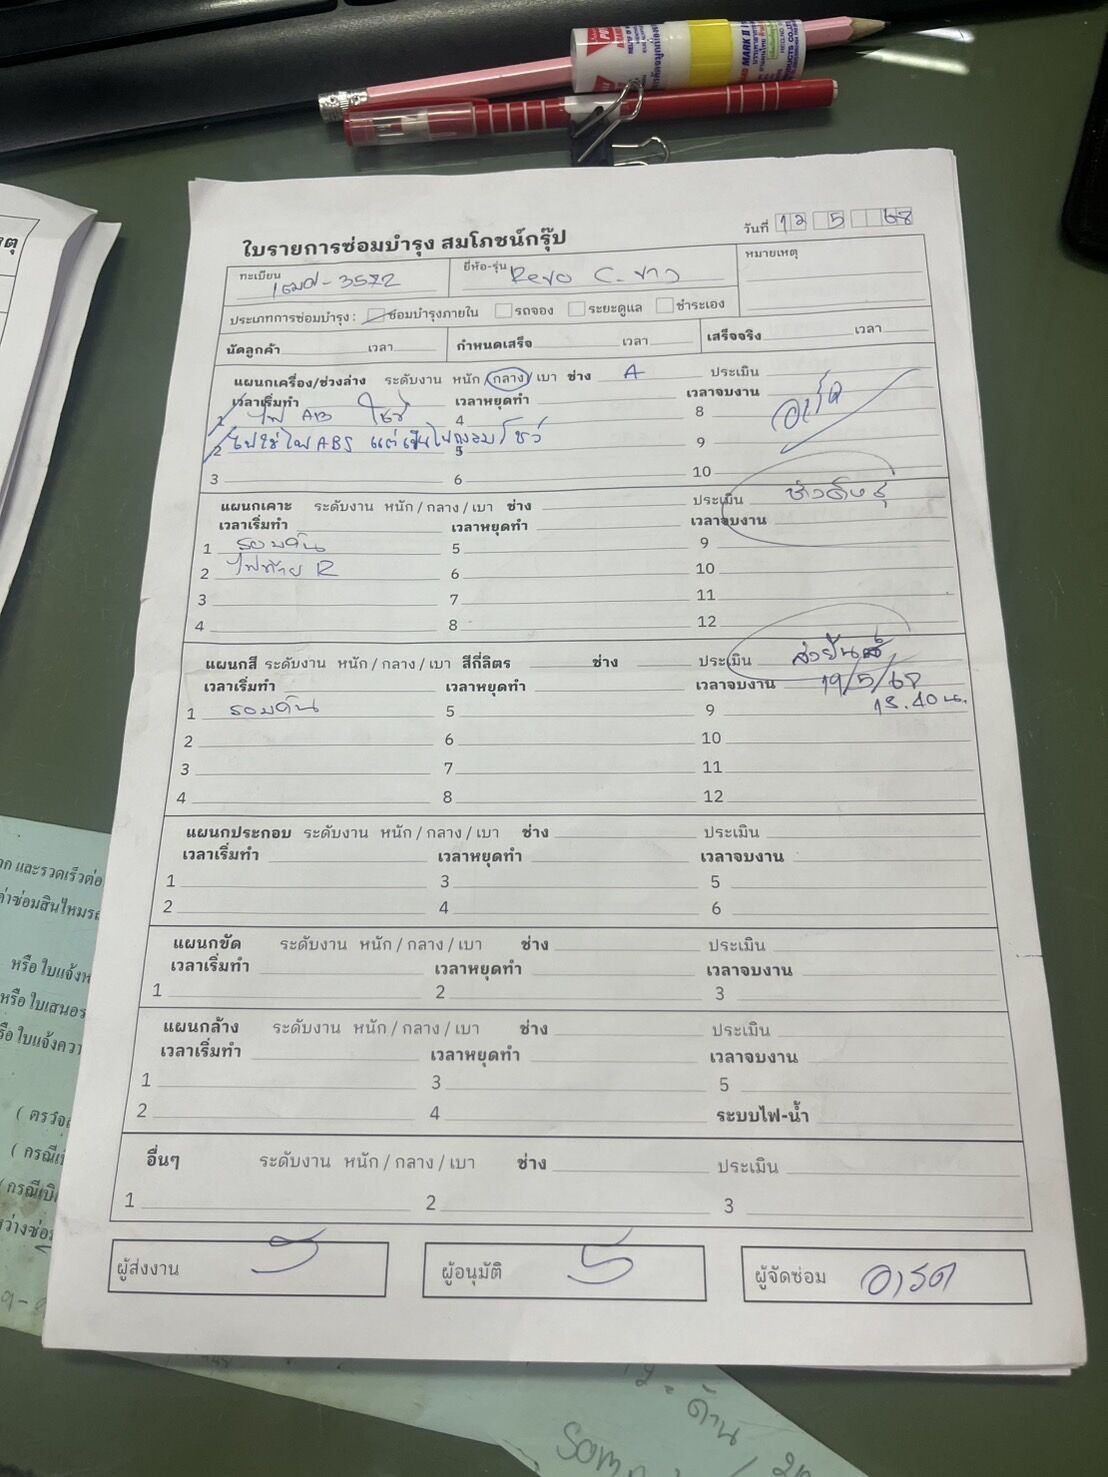 ใบรายการซ่อมบำรุง สมโภชน์กรุ๊ป
วันที่ 12 5 68
ทะเบียน 3572
ยี่ห้อ-รุ่น Revo C.ขาว
หมายเหตุ
ประเภทการซ่อมบำรุง : ซ่อมบำรุงภายใน รถจอง ระยะดูแล ชำระเอง
นัดลูกค้า เวลา กำหนดเสร็จ เวลา เสร็จจริง เวลา
แผนกเครื่อง/ช่วงล่าง ระดับงาน หนัก / กลาง / เบา ช่าง A ประเมิน
เวลาเริ่มทำ เวลาหยุดทำ เวลาจบงาน
1 ไฟ โชว์ 4 8
2 ไฟ ABS แต่เป็น โชว์ 5 9
3 6 10
แผนกเคาะ ระดับงาน หนัก / กลาง / เบา ช่าง ประเมิน
เวลาเริ่มทำ เวลาหยุดทำ เวลาจบงาน
1 รอบคัน 5 9
2 ไฟท้าย R 6 10
3 7 11
4 8 12
แผนกสี ระดับงาน หนัก / กลาง / เบา สีกี่ลิตร ช่าง ประเมิน
เวลาเริ่มทำ เวลาหยุดทำ เวลาจบงาน 19/5/68
1 รอบคัน 5 9 13.40 น.
2 6 10
3 7 11
4 8 12
แผนกประกอบ ระดับงาน หนัก / กลาง / เบา ช่าง ประเมิน
เวลาเริ่มทำ เวลาหยุดทำ เวลาจบงาน
1 3 5
2 4 6
แผนกขัด ระดับงาน หนัก / กลาง / เบา ช่าง ประเมิน
เวลาเริ่มทำ เวลาหยุดทำ เวลาจบงาน
1 2 3
แผนกล้าง ระดับงาน หนัก / กลาง / เบา ช่าง ประเมิน
เวลาเริ่มทำ เวลาหยุดทำ เวลาจบงาน
1 3 5
2 4 ระบบไฟ-น้ำ
อื่นๆ ระดับงาน หนัก / กลาง / เบา ช่าง ประเมิน
1 2 3
ผู้ส่งงาน ผู้อนุมัติ ผู้จัดซ่อม
และรวดเร็วต่อ
ค่าซ่อมสินไหม
หรือ ใบแจ้ง
หรือ ใบเสนอ
ใบแจ้งความ
( กรณี
(กรณีเบิ
MARK II